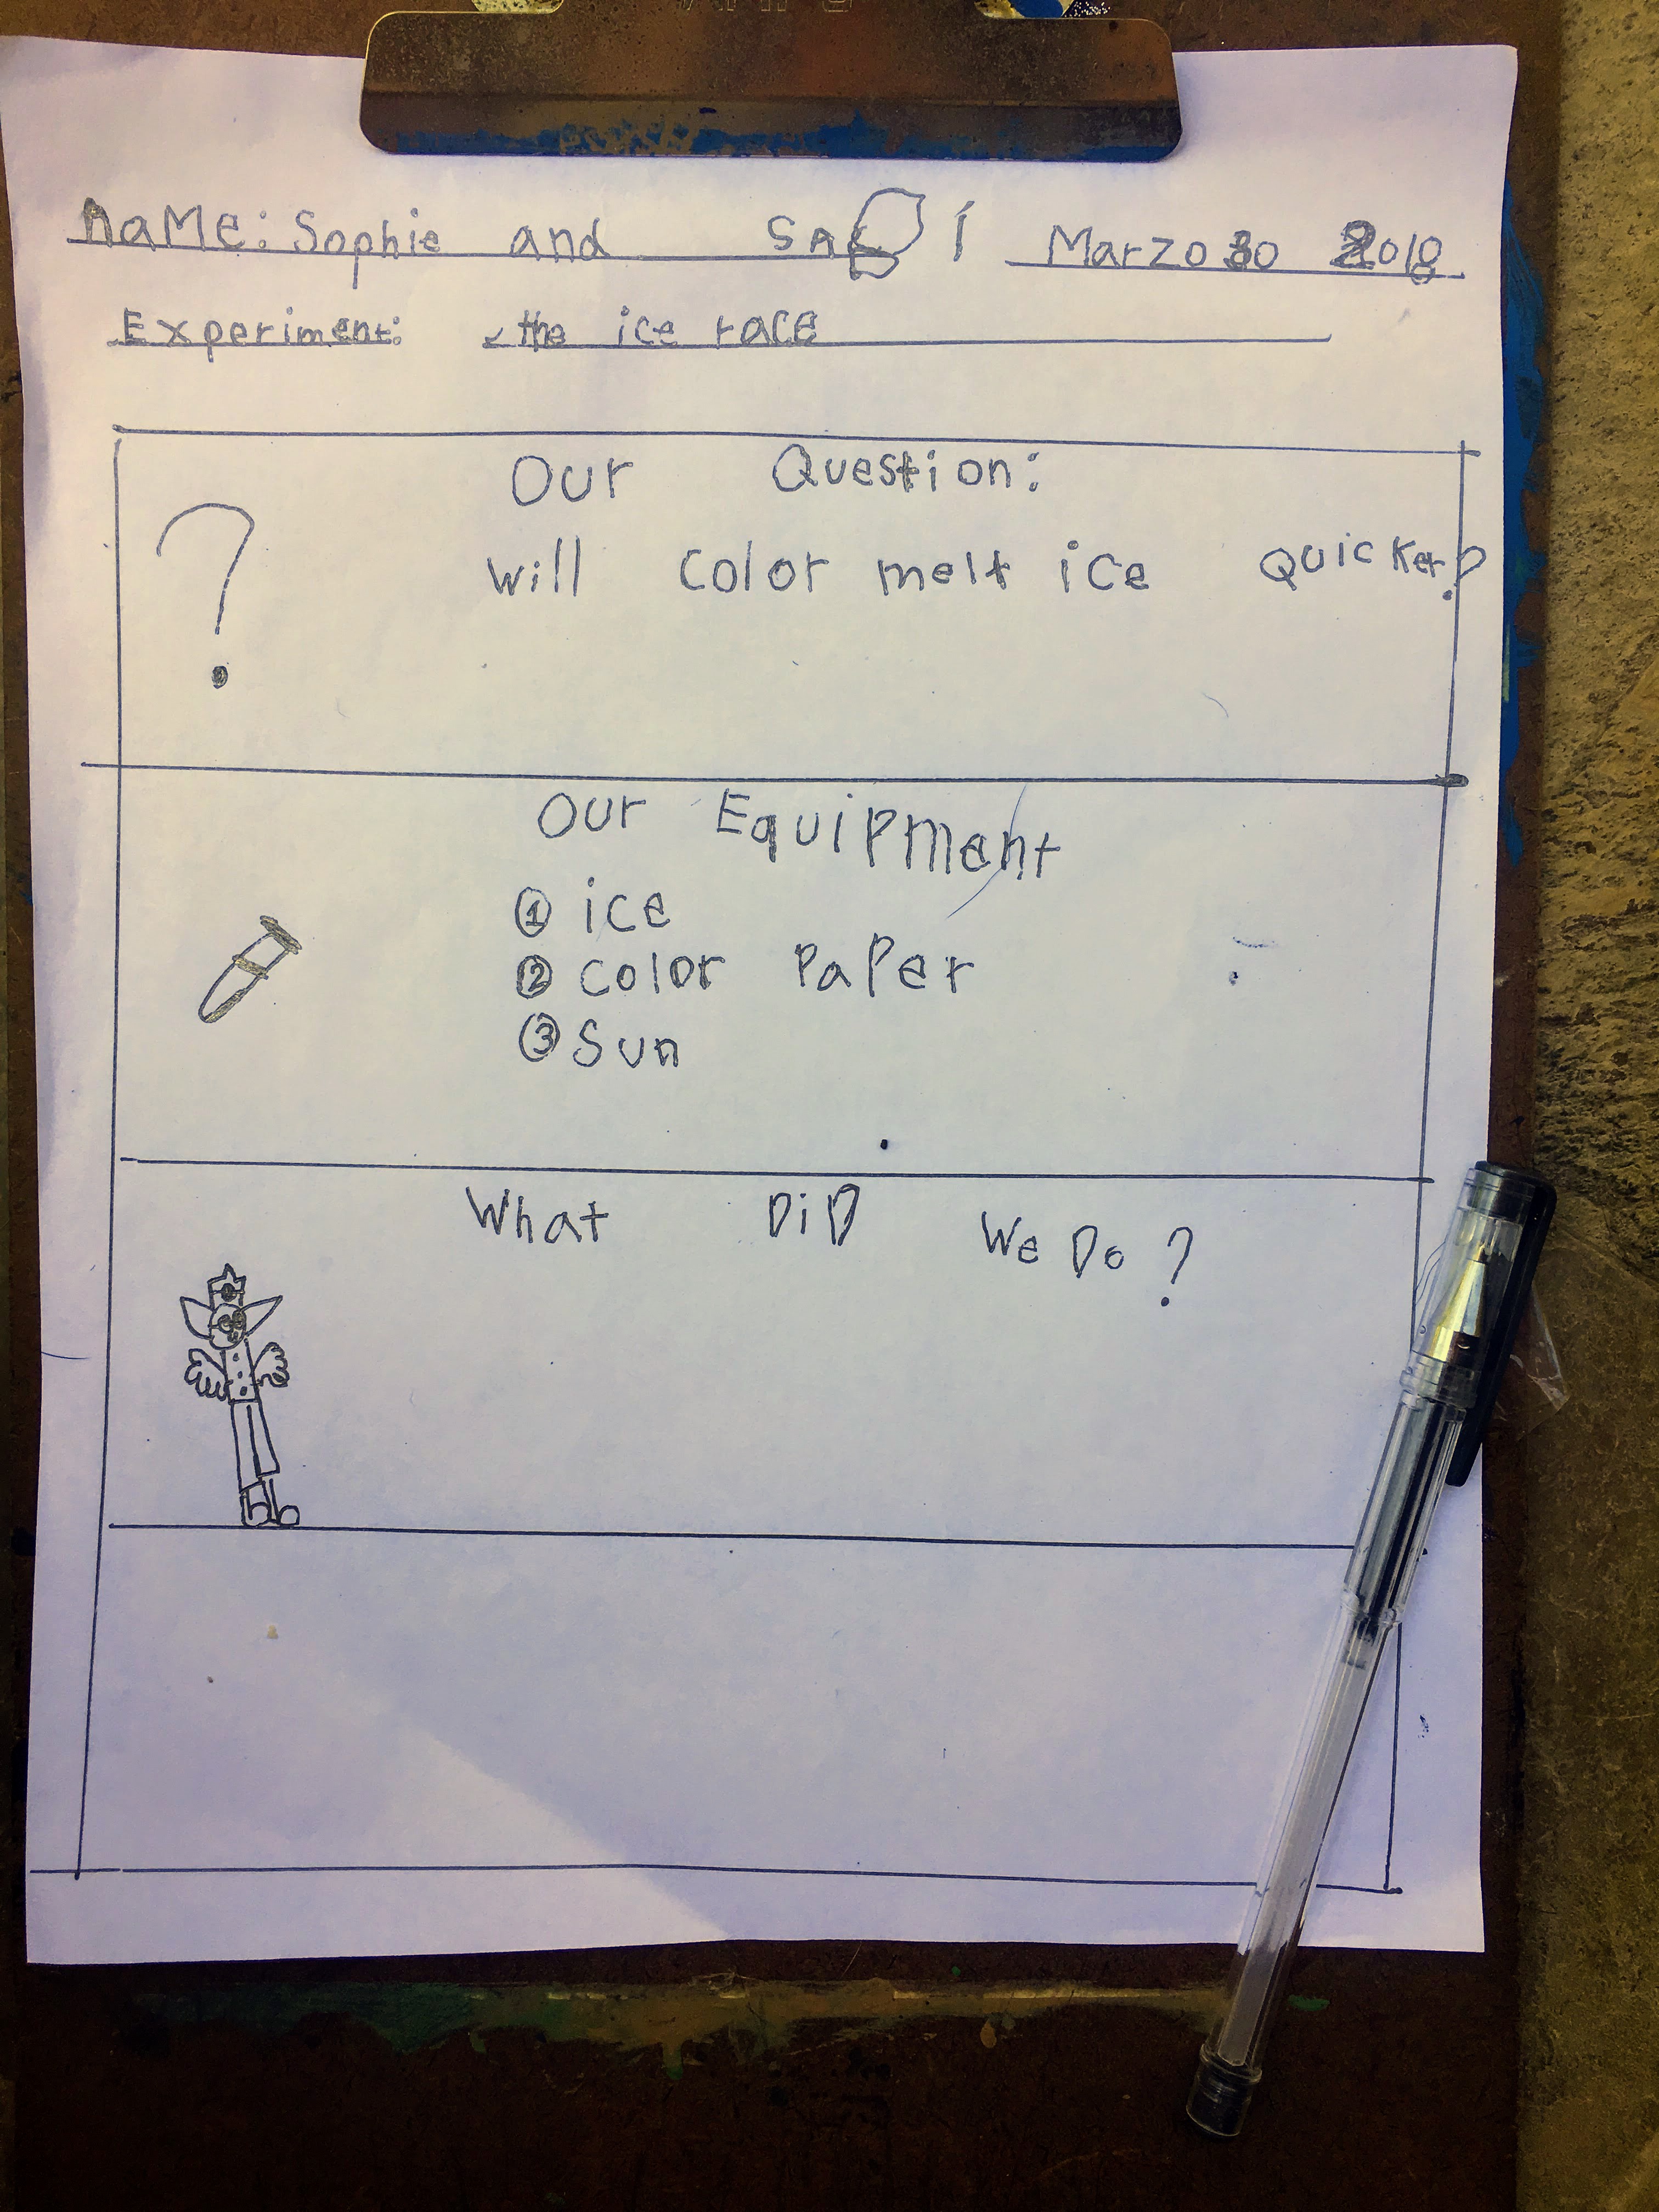 naMe: Sophie and Marzo 30 2018
Experiment: the ice race
Our Question:
Will color melt ice Quicker?
Our Equipment
① ice
② color PaPer
③ Sun
What DiD We Do?